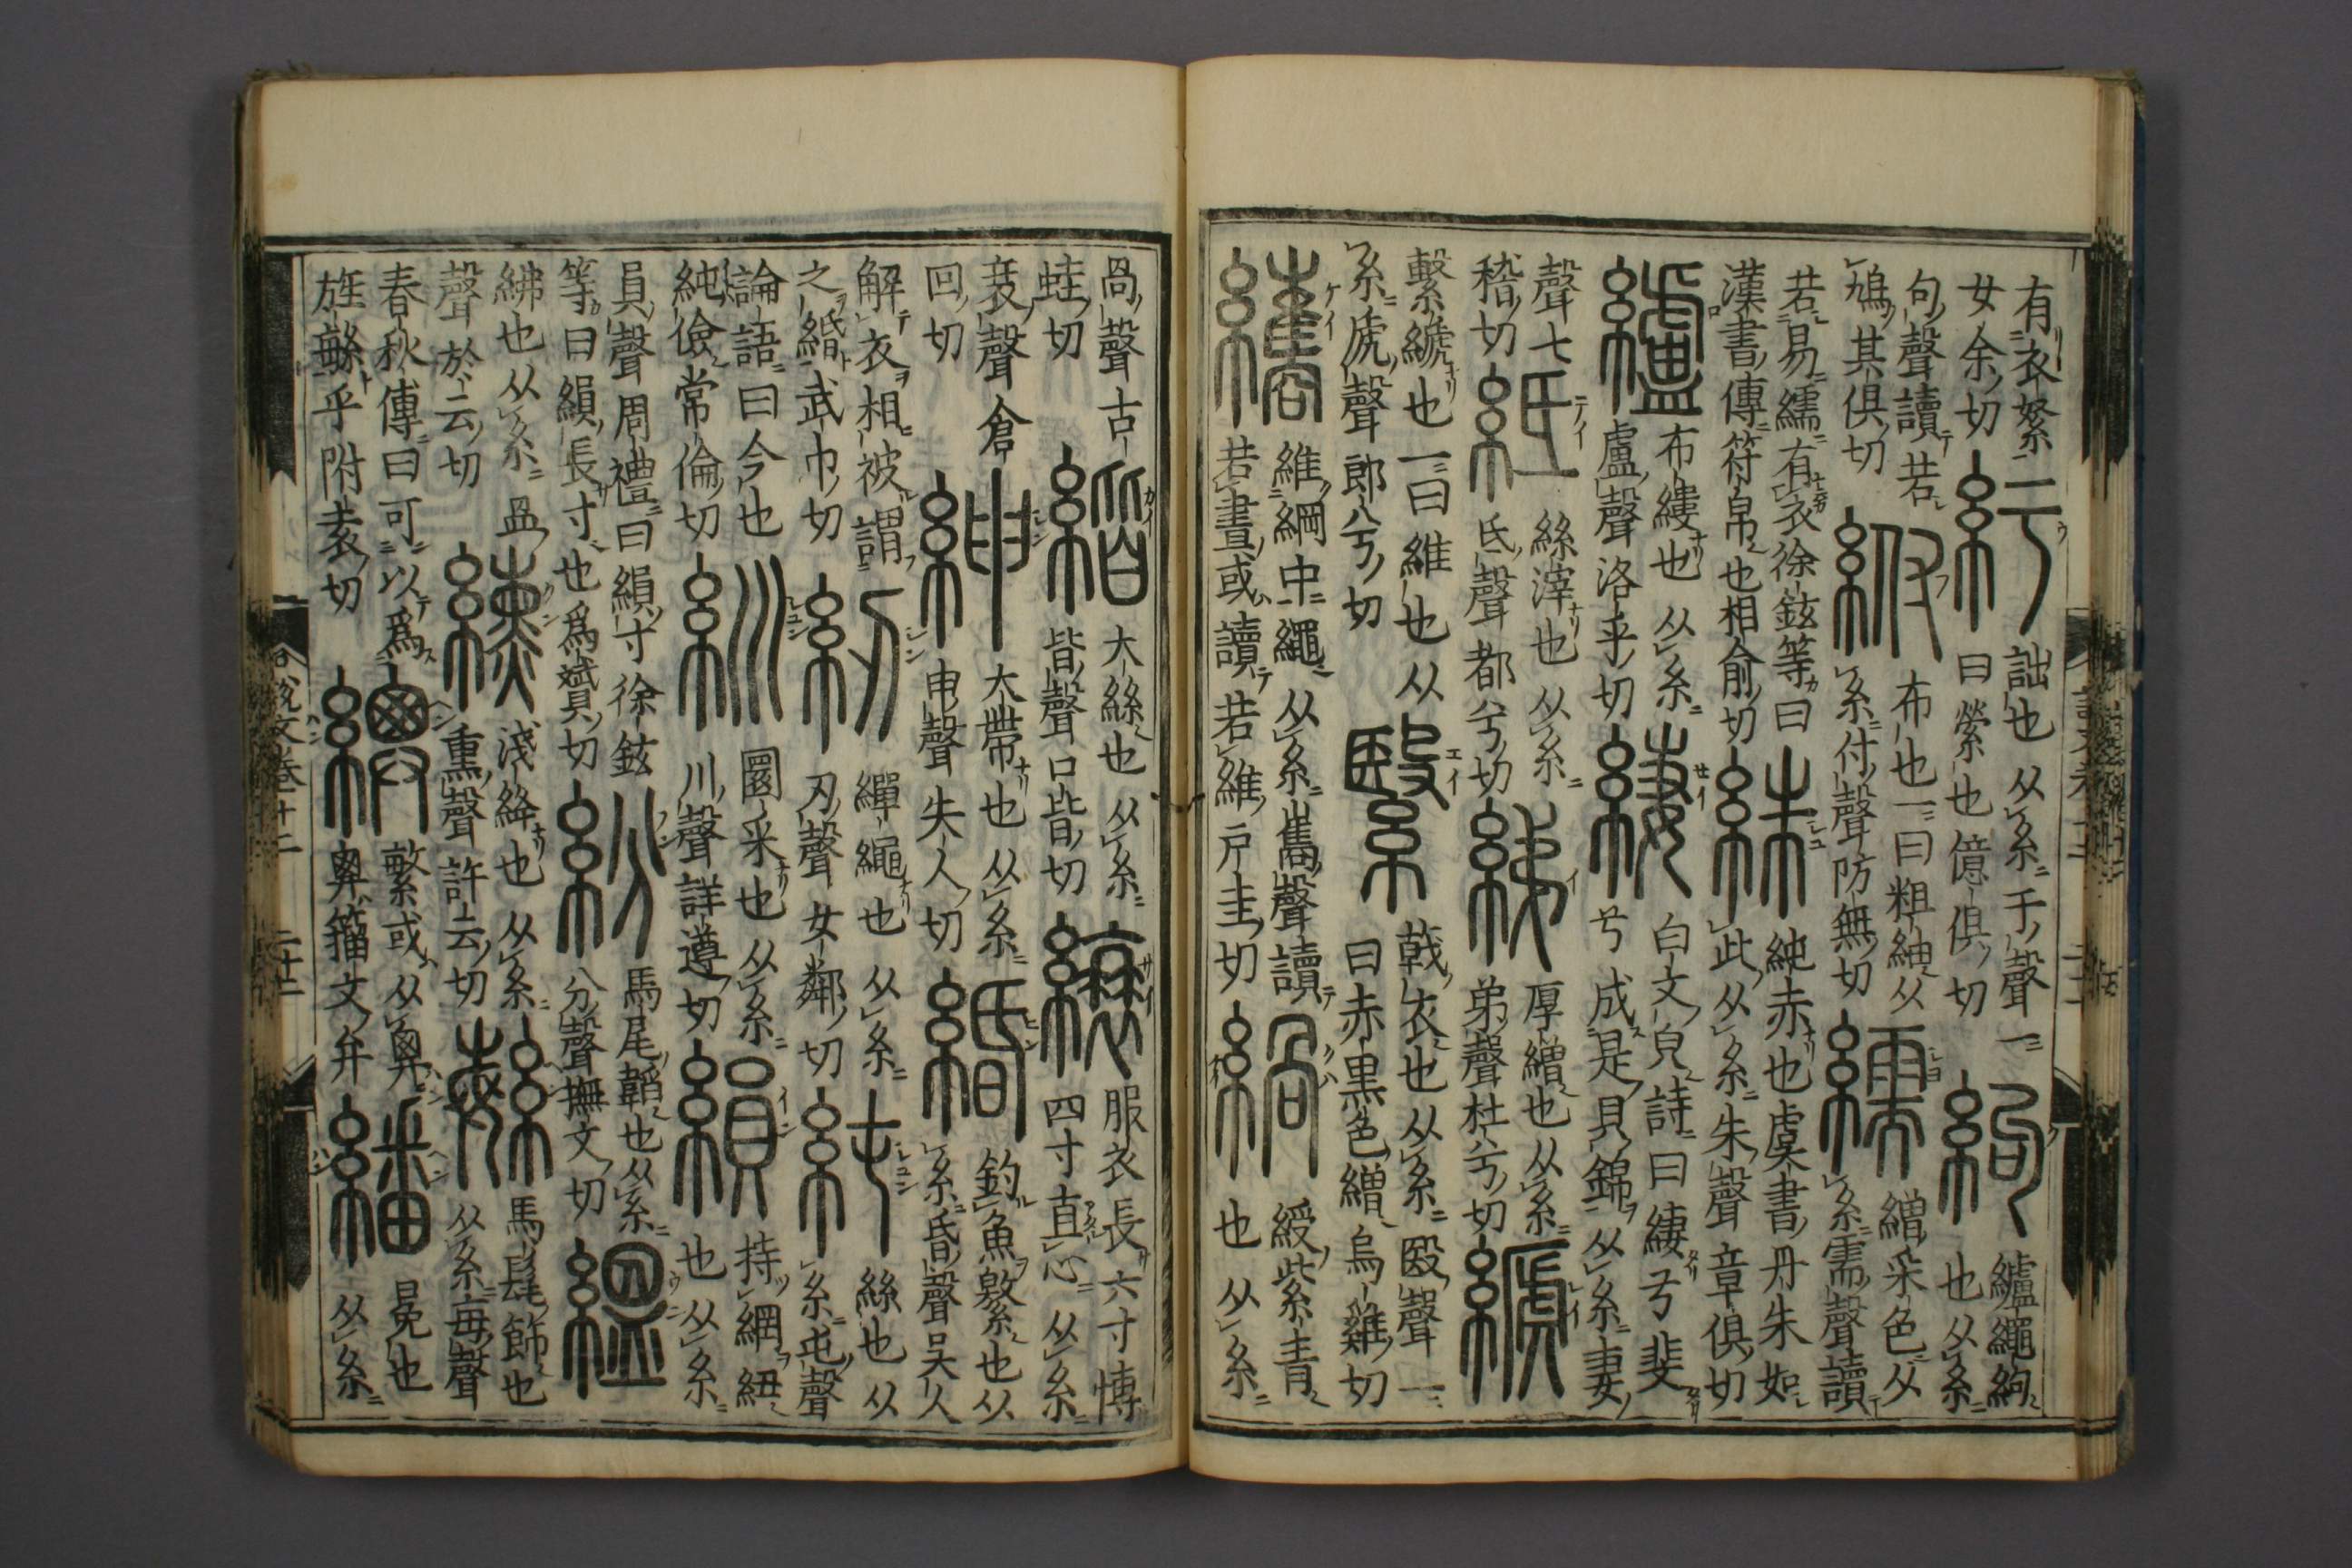 有衣絮
女余切
紆
詘也从糸于聲一
曰縈也億俱切
絇
纑繩絇
也从糸
句聲讀若
鳩其俱切
紨
布也一曰粗紬从
糸付聲防無切
繻
繒采色从
糸需聲讀
若易繻有衣徐鉉等曰
漢書傳符帛也相俞切
絑
純赤也虞書丹朱如
此从糸朱聲章俱切
纑
布縷也从糸
盧聲洛乎切
緀
白文皃詩曰緀兮斐
兮成是貝錦从糸妻
聲七
稽切
絲滓也从糸
氐聲都兮切
綈
厚繒也从糸
弟聲杜兮切
繫也一曰維也从
糸虒聲郎兮切
繄
戟衣也从糸殹聲一
曰赤黑色繒烏雞切
纗
維綱中繩从糸巂聲讀
若畫或讀若維戶圭切
緺
綬紫青
也从糸
咼聲古
蛙切
大絲也从糸
皆聲口皆切
縗
服衣長六寸博
四寸直心从糸
衰聲倉
回切
紳
大帶也从糸
申聲失人切
緡
釣魚繁也从
糸昏聲吳人
解衣相被謂
之緍武巾切
紉
繟繩也从糸
刃聲女鄰切
純
絲也从
糸屯聲
論語曰今也
純儉常倫切
紃
圜采也从糸
川聲詳遵切
縜
持綱紐
也从糸
員聲周禮曰縜寸徐鉉
等曰縜長寸也爲贇切
紛
馬尾韜也从糸
分聲撫文切
縕
紼也从糸
𥁕聲於云切
纁
淺絳也从糸
熏聲許云切
緐
馬髦飾也
从糸每聲
春秋傳曰可以爲
旌緐乎附袁切
繁或从
籀文弁
繙
冕也
从糸
說文卷十二
二十二